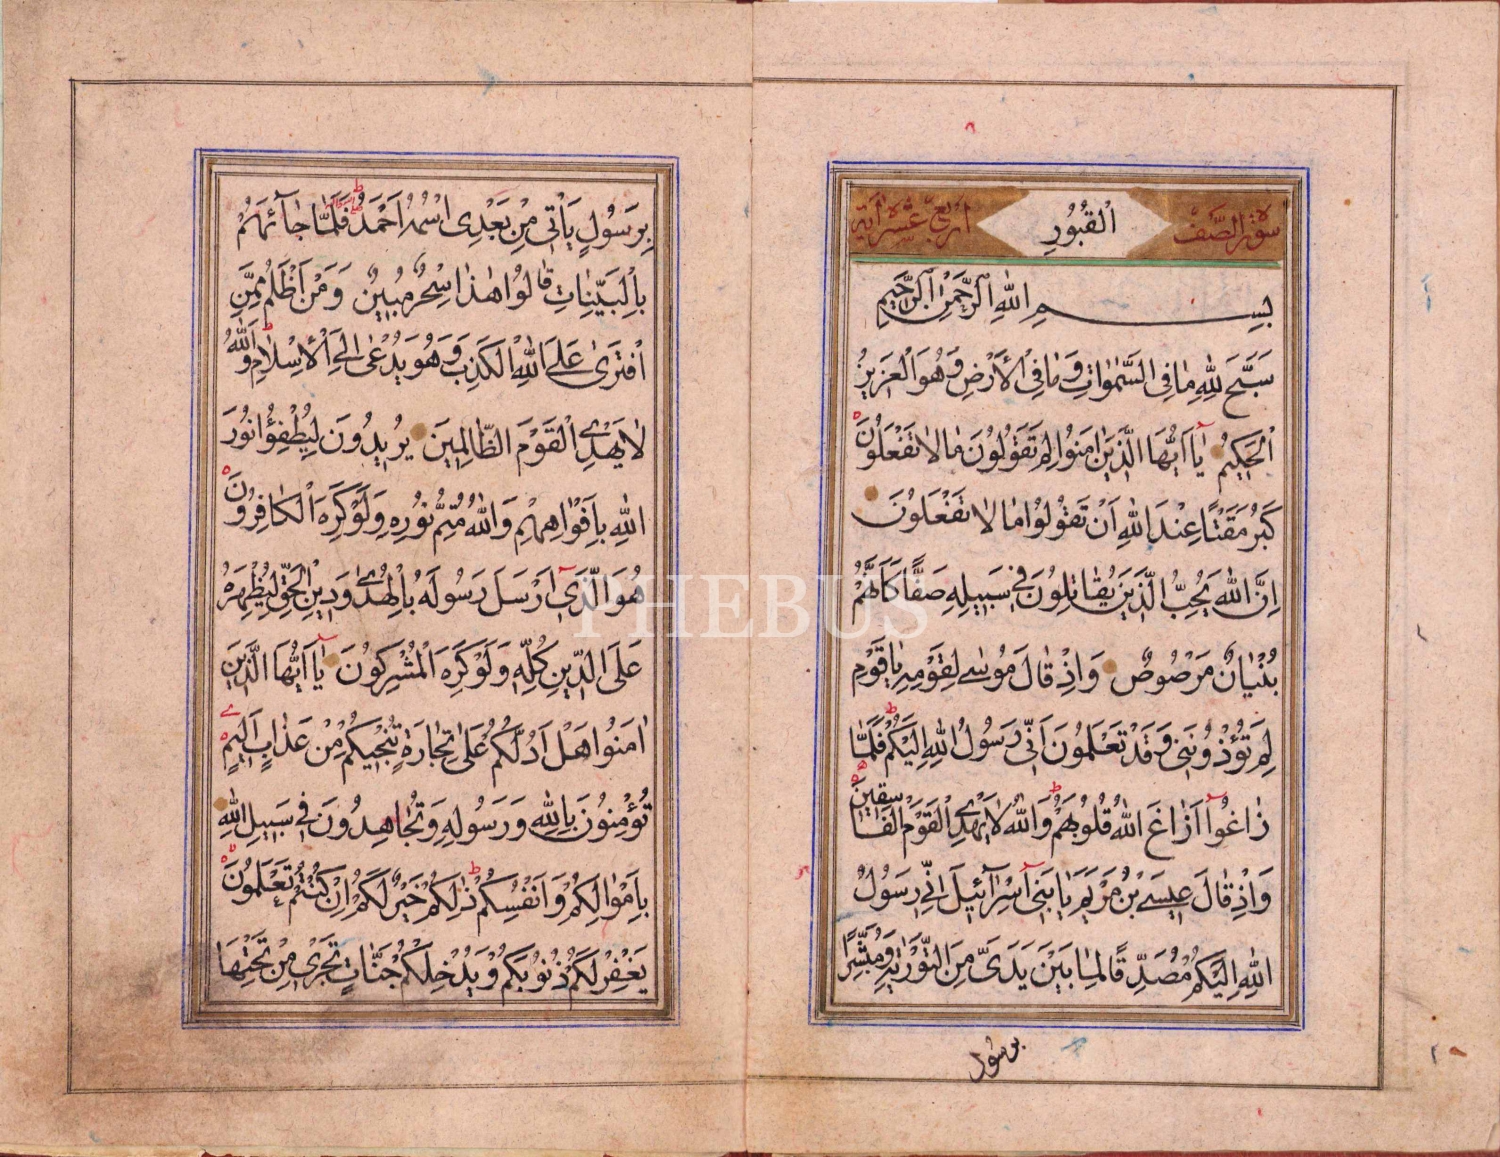 سورة الصف القبور اربع عشر اية
بِسْمِ اللّٰهِ الرَّحْمٰنِ الرَّحِيمِ
سَبَّحَ لِلّٰهِ مٰا فِى السَّمٰوٰاتِ وَمٰا فِى الْأَرْضِ وَهُوَ الْعَزِيزُ
الْحَكِيمُ يٰا اَيُّهَا الَّذِينَ اٰمَنُوا لِمَ تَقُولُونَ مٰا لٰا تَفْعَلُونَ
كَبُرَ مَقْتًا عِنْدَ اللّٰهِ اَنْ تَقُولُوا مٰا لٰا تَفْعَلُونَ
اِنَّ اللّٰهَ يُحِبُّ الَّذِينَ يُقٰاتِلُونَ فِى سَبِيلِهِ صَفًّا كَاَنَّهُمْ
بُنْيٰانٌ مَرْصُوصٌ وَاِذْ قٰالَ مُوسٰى لِقَوْمِهِ يٰا قَوْمِ
لِمَ تُؤْذُونَنِى وَقَدْ تَعْلَمُونَ اَنِّى رَسُولُ اللّٰهِ اِلَيْكُمْ فَلَمّٰا
زٰاغُوا اَزٰاغَ اللّٰهُ قُلُوبَهُمْ وَاللّٰهُ لٰا يَهْدِى الْقَوْمَ الْفٰاسِقِينَ
وَاِذْ قٰالَ عِيسَى بْنُ مَرْيَمَ يٰا بَنِى اِسْرٰآئِيلَ اِنِّى رَسُولُ
اللّٰهِ اِلَيْكُمْ مُصَدِّقًا لِمٰا بَيْنَ يَدَىَّ مِنَ التَّوْرٰيةِ وَمُبَشِّرًا
برسول
بِرَسُولٍ يَاْتِى مِنْ بَعْدِى اسْمُهُ اَحْمَدُ فَلَمّٰا جٰآئَهُمْ
بِالْبَيِّنٰاتِ قٰالُوا هٰذٰا سِحْرٌ مُبِينٌ وَمَنْ اَظْلَمُ مِمَّنِ
افْتَرٰى عَلَى اللّٰهِ الْكَذِبَ وَهُوَ يُدْعٰى اِلَى الْأِسْلٰامِ وَاللّٰهُ
لٰا يَهْدِى الْقَوْمَ الظّٰالِمِينَ يُرِيدُونَ لِيُطْفِؤُا نُورَ
اللّٰهِ بِاَفْوٰاهِهِمْ وَاللّٰهُ مُتِمُّ نُورِهِ وَلَوْ كَرِهَ الْكٰافِرُونَ
هُوَ الَّذِى اَرْسَلَ رَسُولَهُ بِالْهُدٰى وَدِينِ الْحَقِّ لِيُظْهِرَهُ
عَلَى الدِّينِ كُلِّهِ وَلَوْ كَرِهَ الْمُشْرِكُونَ يٰا اَيُّهَا الَّذِينَ
اٰمَنُوا هَلْ اَدُلُّكُمْ عَلٰى تِجٰارَةٍ تُنْجِيكُمْ مِنْ عَذٰابٍ اَلِيمٍ
تُؤْمِنُونَ بِاللّٰهِ وَرَسُولِهِ وَتُجٰاهِدُونَ فِى سَبِيلِ اللّٰهِ
بِاَمْوٰالِكُمْ وَاَنْفُسِكُمْ ذٰلِكُمْ خَيْرٌ لَكُمْ اِنْ كُنْتُمْ تَعْلَمُونَ
يَغْفِرْ لَكُمْ ذُنُوبَكُمْ وَيُدْخِلْكُمْ جَنّٰاتٍ تَجْرِى مِنْ تَحْتِهَا
PHEBUS